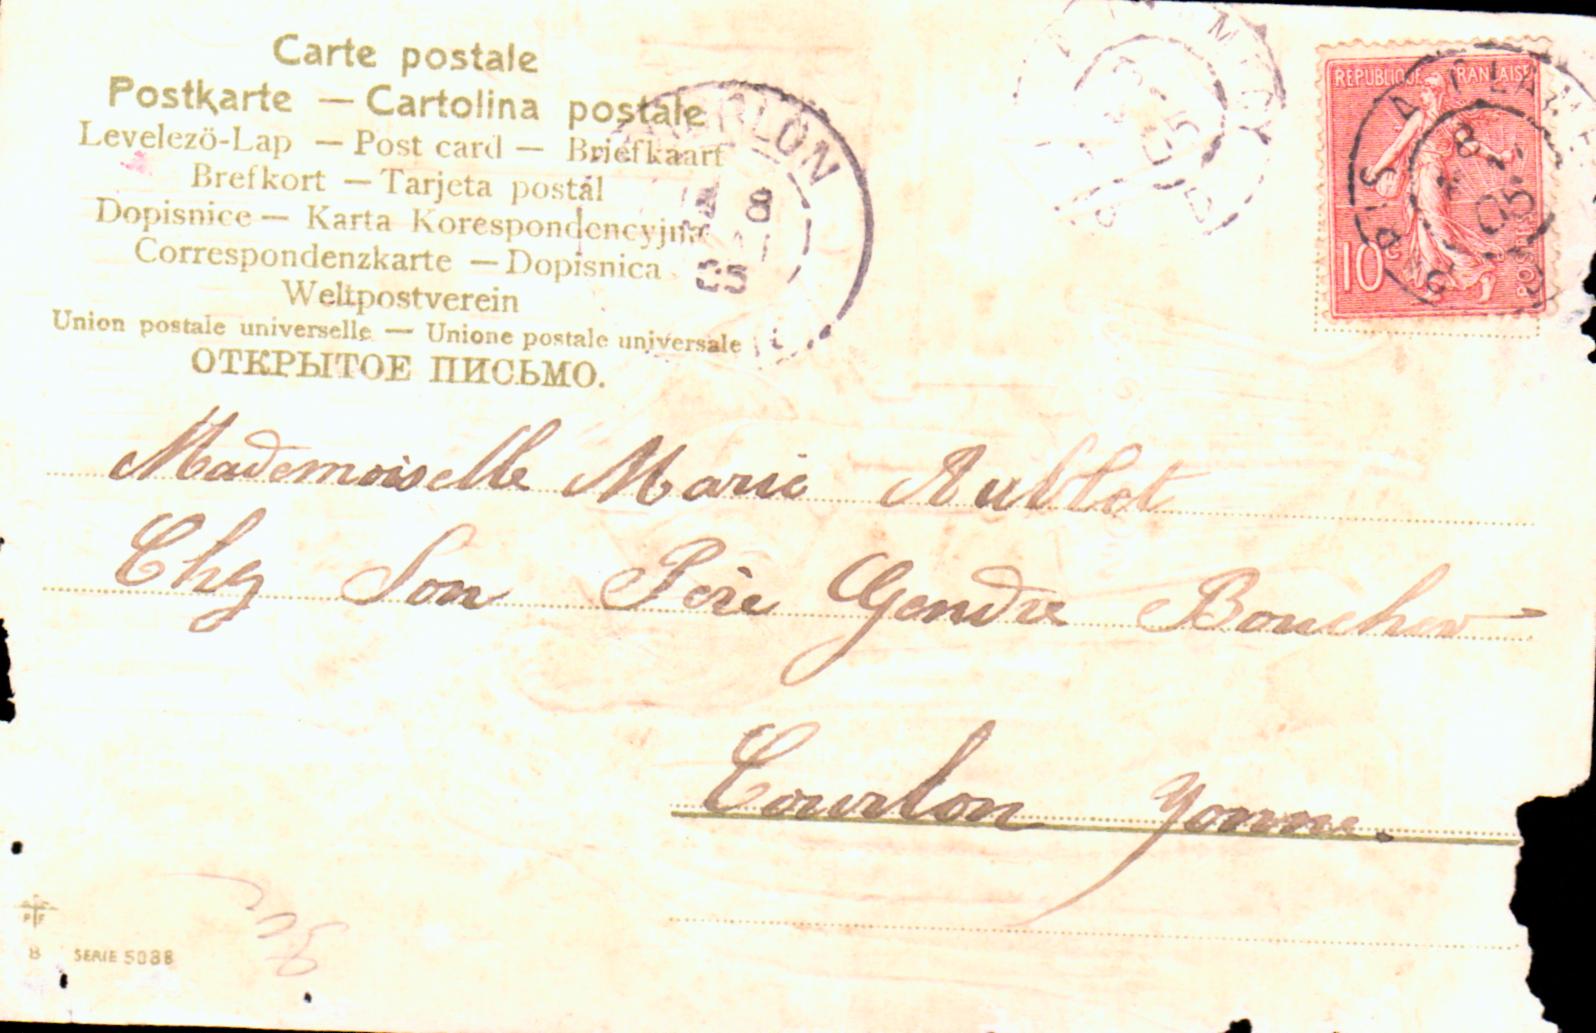 Carte postale
Postkarte — Cartolina postale
Levelezö-Lap — Post card — Briefkaart
Brefkort — Tarjeta postal
Dopisnice — Karta Korespondencyjna
Correspondenzkarte — Dopisnica
Weltpostverein
Union postale universelle — Unione postale universale
ОТКРЫТОЕ ПИСЬМО.
COURLON
8
05
REPUBLIQUE FRANÇAISE
10c
POSTES
8-5
05
Mademoiselle Marie Aublet
Chez Son Père Gendre Boucher
Courlon Yonne.
PF
B SERIE 5088